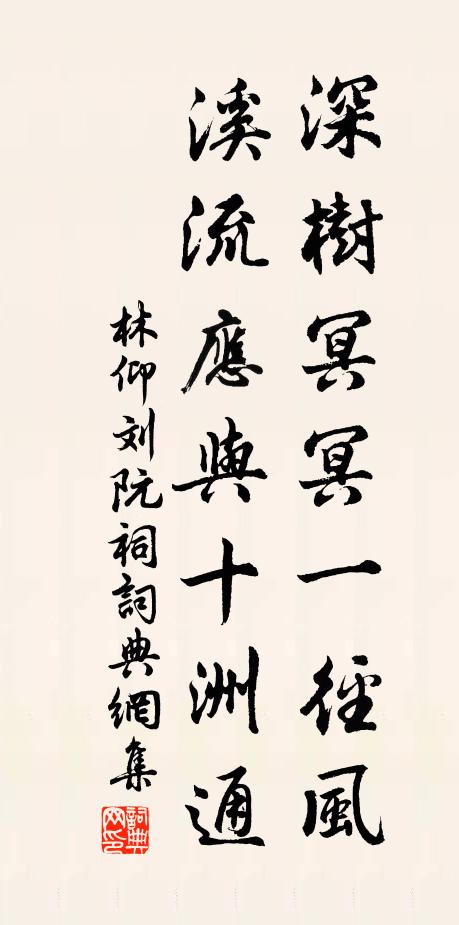 深樹冥冥一徑風
溪流應與十洲通
林仰刘阮祠詞典網集
詞典
网印